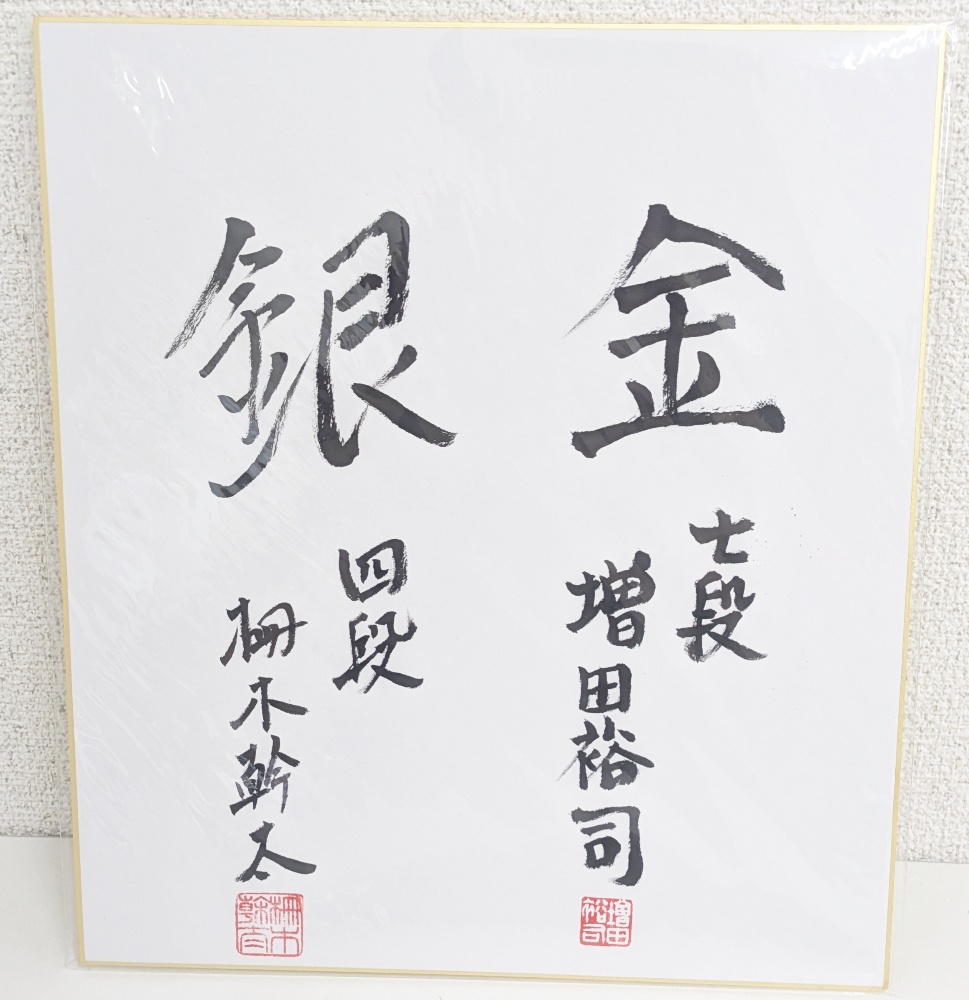 金
七段
増田裕司
増田
裕司
銀
四段
柵木幹太
柵木
幹太